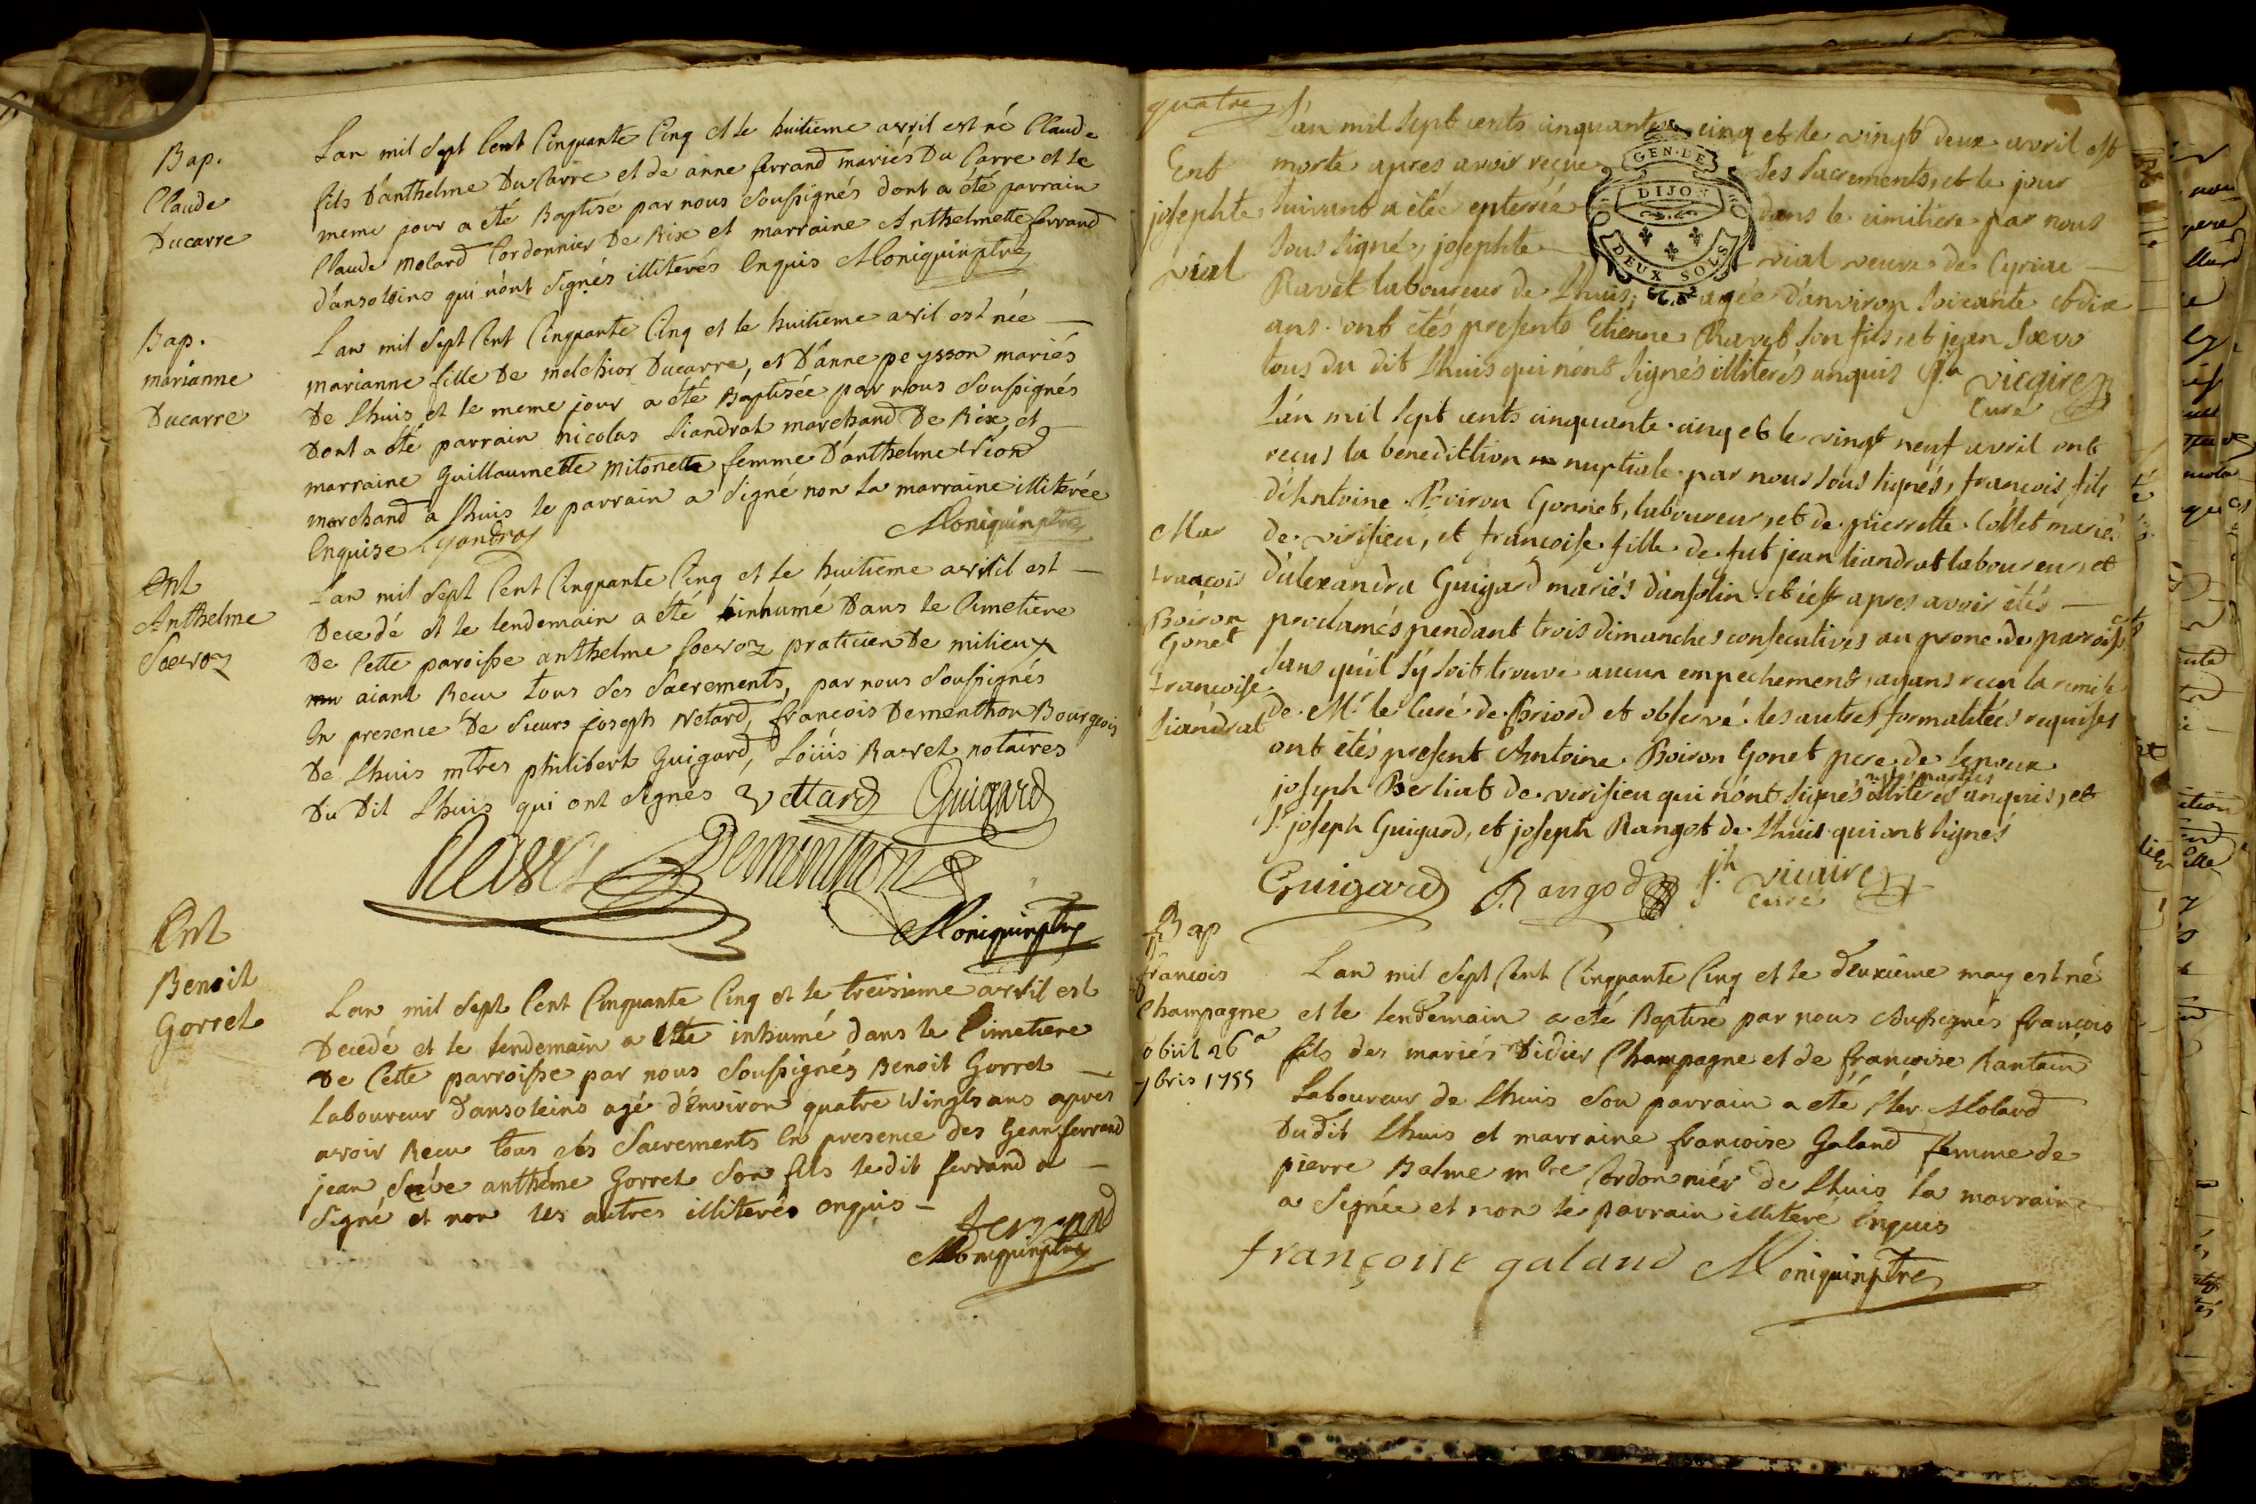 Bap.
Claude
Ducarre
Lan mil sept Cent Cinquante Cinq et le huitieme avril est né Claude
fils D'anthelme Du Carre et de anne ferrand mariés Du Carre et le
meme jour a eté Baptisé par nous soussignés dont a été parrain
Claude molard Cordonnier De Rix et marraine Anthelmette ferrand
d'ansoleins qui n'ont signés illiterés Enquis Moniquin ptre
Bap.
marianne
Ducarre
Lan mil sept Cent Cinquante Cinq et le huitieme avril est née
marianne fille De melchior Ducarre, et D'anne peysson mariés
De Lhuis et le meme jour a été Baptisée par nous soussignés
Dont a été parrain nicolas Liandrat marchand De Rix, et
marraine Guillaumette mitonette femme D'anthelme
marchand a Lhuis le parrain a signé non la marraine illiterée
Enquise Lyandras Moniquin ptre
Ent
Anthelme
Soervoz
Lan mil sept Cent Cinquante Cinq et le huitieme avril est
Decedé et le lendemain a été inhumé Dans le Cimetiere
De Cette paroisse anthelme soervoz praticien De milieux
aiant Recu tous ses sacrements, par nous soussignés
En presence De sieurs joseph Vetard, francois Dementhon Bourgeois
De Lhuis mtres philibert Guigard, Loüis Ravet notaires
Du Dit Lhuis qui ont signés Vettard Guigard
Ravet Dementhon
Moniquin ptre
Ent
Benoit
Gorret
Lan mil sept Cent Cinquante Cinq et le treisieme avril est
Decedé et le lendemain a été inhumé dans le Cimetiere
De Cette parroisse par nous soussignés Benoit Gorret
Laboureur d'ansoleins agé d'Environ quatre Vingts ans apres
avoir Recu tous ses sacrements En presence des ferrand
jean seive anthelme Gorret son fils ledit ferrand a
signé et non les autres illiterés enquis
Ferrand
Moniquin ptre
quatre
Ent
josephte
vial
L'an mil sept cents cinquante cinq et le vingt deux avril est
morte apres avoir reçue ses sacrements, et le jour
suivant a étée enterrée dans le cimitiere par nous
sous signé, josephte vial veuve de Cyriac
Ravet laboureur de Lhuis, agée d'anviron soixante et dix
ans. ont étés presents Etienne Ravet son fils, et jean
tous du dit Lhuis qui n'ont signés illiterés anquis jh vicaire
Curé
GEN. DE
DIJON
DEUX SOLS
Mar
francois
Boiron
Gonet
francoise
Liandrat
L'an mil sept cents cinquante cinq et le vingt neuf avril ont
reçus la benedittion nuptiale par nous sous signés, francois fils
d'Antoine Boiron Gonnet, laboureur, et de pierrette Collet mariés
de virisieu, et francoise fille de fut jean liandrat laboureur, et
d'alexandra Guigard mariés d'ansolin. et c'est apres avoir étés
proclamés pendant trois dimanches consecutives au prone des parroisses
sans qu'il s'y soit trouvé aucun empechement, ayans reçu la remise
de Mr. le Curé de Briord et observé les autres formalitées requises
ont étés present Antoine Boiron Gonet pere de lepoux
joseph Berliat de virisieu qui n'ont signés illiterés anquis, et
Sr joseph Guigard, et joseph Rangot de Lhuis qui ont signés
Guigard Rangod jh vicaire
Curé
Bap
francois
Champagne
obiit 26a
7bris 1755
Lan mil sept Cent Cinquante Cinq et le deuxieme may est né
et le lendemain a eté Baptisé par nous soussignés françois
fils des mariés Didier Champagne et de francoise Rantain
Laboureur de Lhuis son parrain a eté Molard
Dudit Lhuis et marraine francoise Galand femme de
pierre Balme mtre Cordonnier de Lhuis la marraine
a signée et non le parrain illiteré Enquis
françoise galand Moniquin ptre